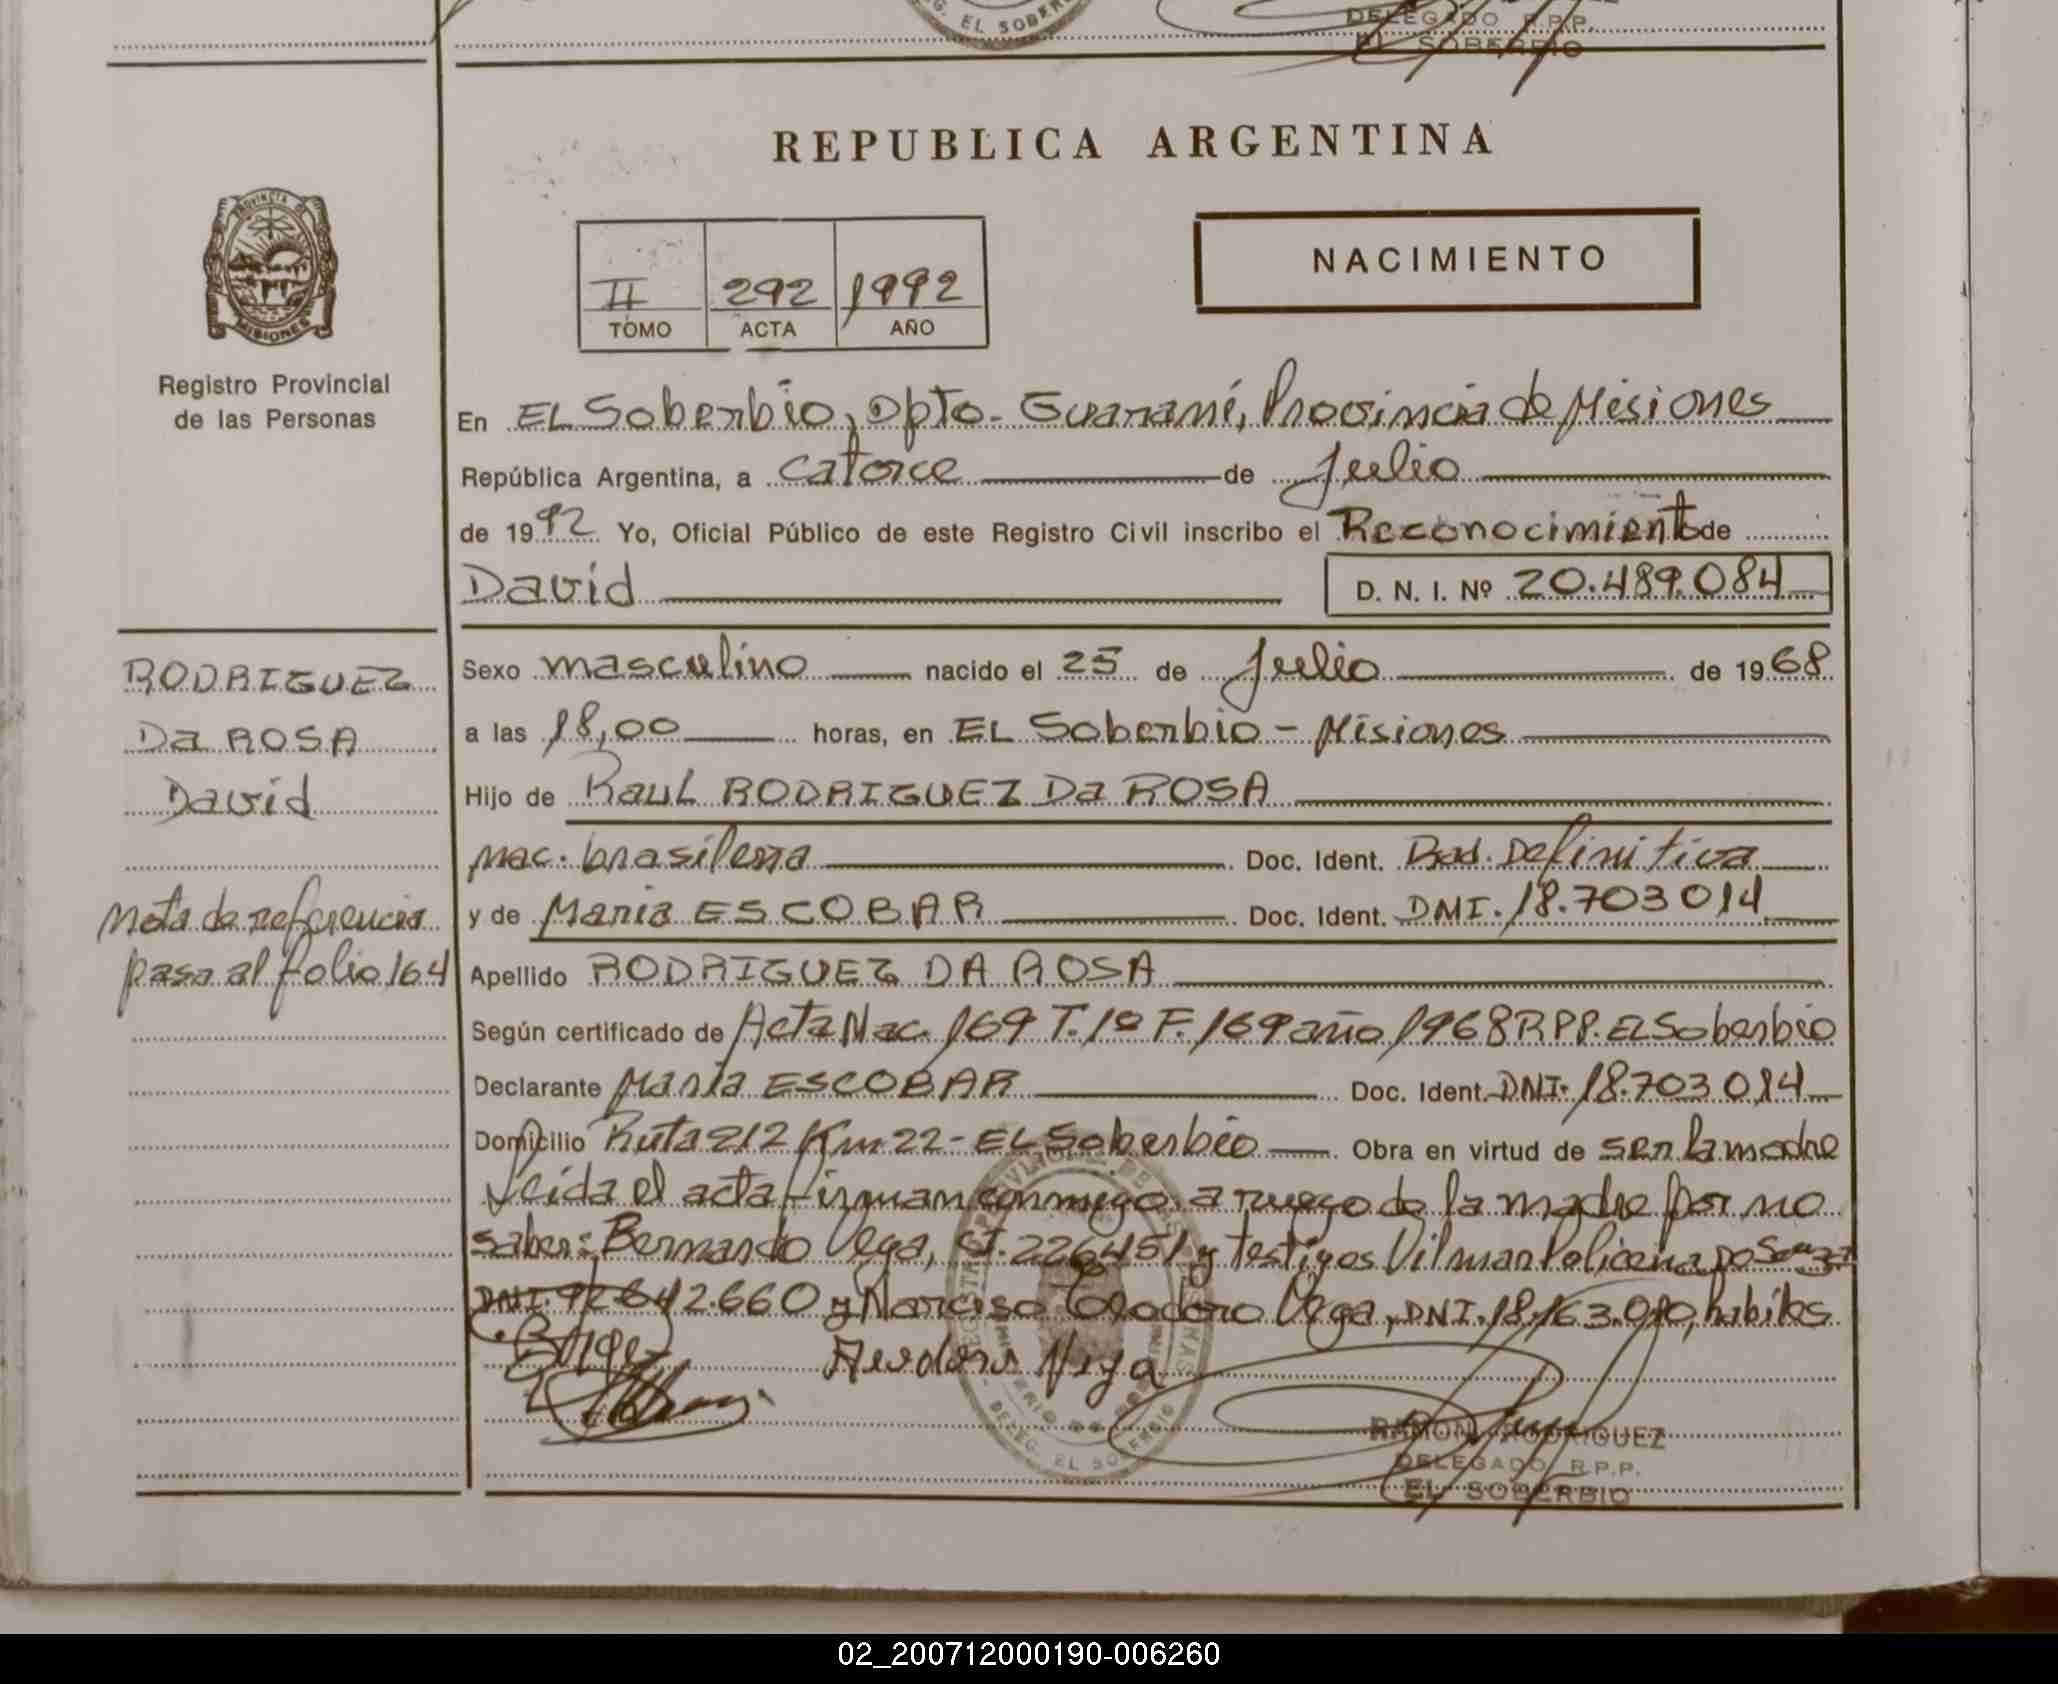 DELEG. EL SOBERBIO
DELEGADO R.P.P.
EL SOBERBIO
REPUBLICA ARGENTINA
NACIMIENTO
II 292 1992
TOMO ACTA AÑO
PROVINCIA DE
MISIONES
Registro Provincial
de las Personas
En EL Soberbio, Dpto- Guaraní, Provincia de Misiones
República Argentina, a catorce de Julio
de 1992 Yo, Oficial Público de este Registro Civil inscribo el Reconocimiento de
David D. N. I. Nº 20.489.084
RODRIGUEZ
Da ROSA
David
Nota de referencia
pasa al folio 164
Sexo masculino nacido el 25 de Julio de 1968
a las 18,00 horas, en EL Soberbio - Misiones
Hijo de Raul RODRIGUEZ Da ROSA
nac. brasilera Doc. Ident. Rad. Definitiva
y de Maria ESCOBAR Doc. Ident. DNI. 18.703.014
Apellido RODRIGUEZ DA ROSA
Según certificado de Acta Nac. 169 T. 1º F. 169 año 1968 RPP. EL Soberbio
Declarante María ESCOBAR Doc. Ident. DNI. 18.703.014
Domicilio Ruta 212 Km 22 - EL Soberbio Obra en virtud de ser la madre
Leida el acta firman conmigo, a ruego de la madre por no
saber: Bernardo Vega, CI. 226451 y testigos Vilman Policena Do Souza
DNI. 92.642.660 y Narciso Teodoro Vega, DNI. 18.163.010, habiles
Teodoro Vega
RAMON RODRIGUEZ
DELEGADO R.P.P.
EL SOBERBIO
DELEG. EL SOBERBIO
02_200712000190-006260